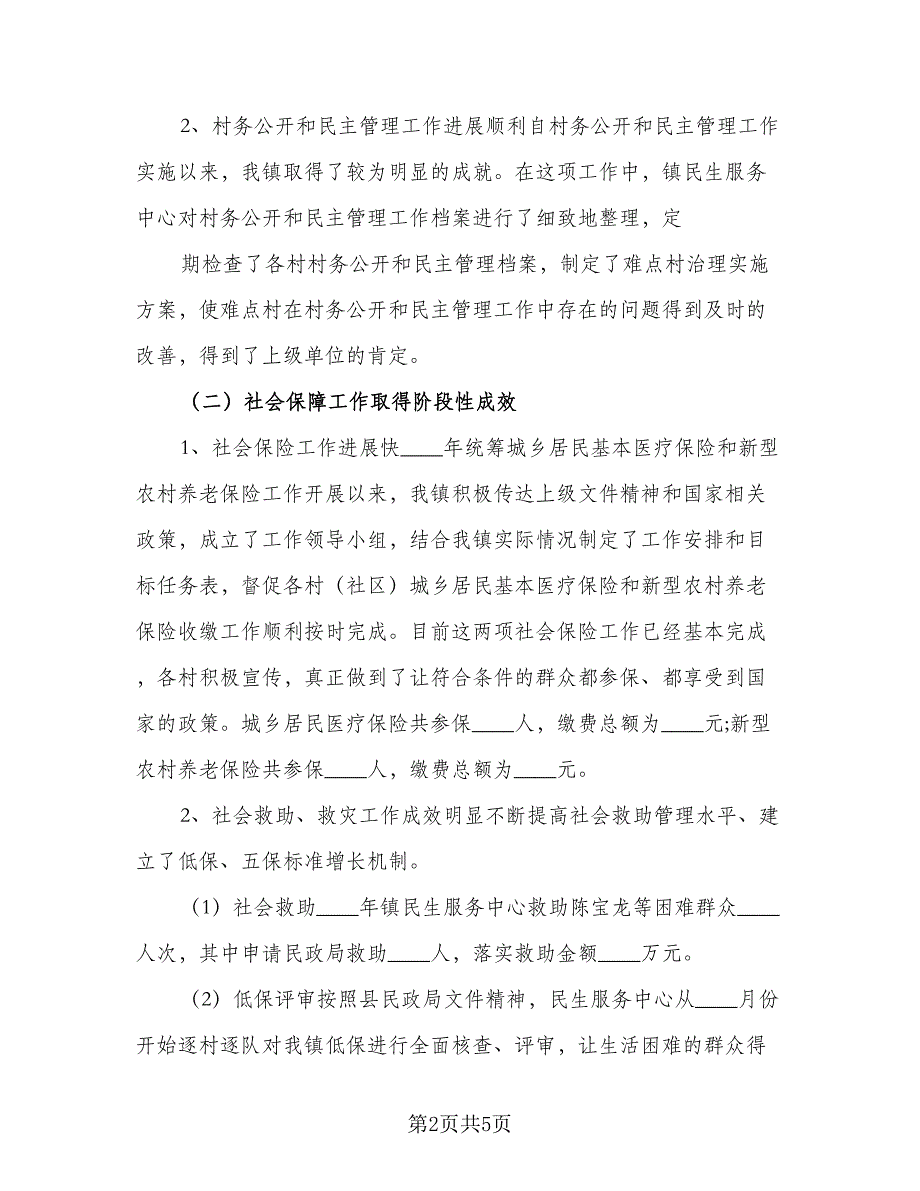 2、村务公开和民主管理工作进展顺利自村务公开和民主管理工作
实施以来，我镇取得了较为明显的成就。在这项工作中，镇民生服务
中心对村务公开和民主管理工作档案进行了细致地整理，定
期检查了各村村务公开和民主管理档案，制定了难点村治理实施
方案，使难点村在村务公开和民主管理工作中存在的问题得到及时的
改善，得到了上级单位的肯定。
（二）社会保障工作取得阶段性成效
1、社会保险工作进展快____年统筹城乡居民基本医疗保险和新型
农村养老保险工作开展以来，我镇积极传达上级文件精神和国家相关
政策，成立了工作领导小组，结合我镇实际情况制定了工作安排和目
标任务表，督促各村（社区）城乡居民基本医疗保险和新型农村养老
保险收缴工作顺利按时完成。目前这两项社会保险工作已经基本完成
，各村积极宣传，真正做到了让符合条件的群众都参保、都享受到国
家的政策。城乡居民医疗保险共参保____人，缴费总额为____元;新型
农村养老保险共参保____人，缴费总额为____元。
2、社会救助、救灾工作成效明显不断提高社会救助管理水平、建
立了低保、五保标准增长机制。
（1）社会救助____年镇民生服务中心救助陈宝龙等困难群众____
人次，其中申请民政局救助____人，落实救助金额____万元。
（2）低保评审按照县民政局文件精神，民生服务中心从____月份
开始逐村逐队对我镇低保进行全面核查、评审，让生活困难的群众得
第2页共5页